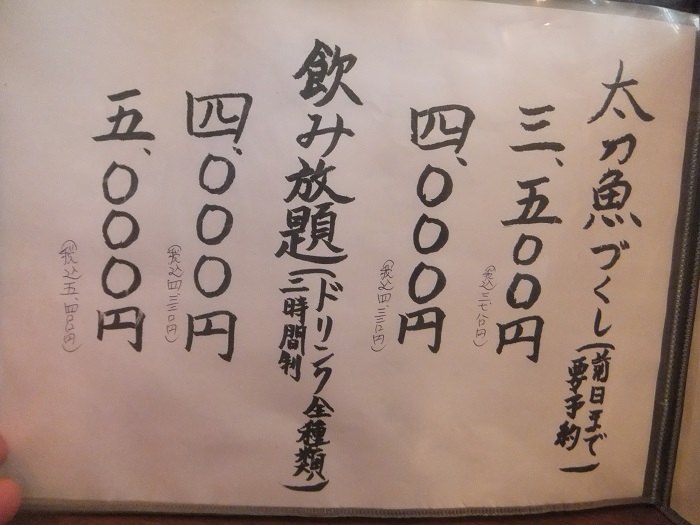 太刀魚づくし(前日まで
要予約)
三、五〇〇円
(税込三、七八〇円)
四、〇〇〇円
(税込四、三二〇円)
飲み放題(ドリンク全種類)
二時間制
四、〇〇〇円
(税込四、三二〇円)
五、〇〇〇円
(税込五、四〇〇円)